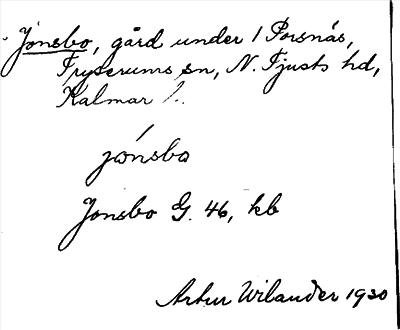 Jonsbo, gård under 1 Porsnäs,
Tryserums sn, N. Tjusts hd,
Kalmar l.
jònsbo
Jonsbo G. 46, kb
Artur Wilander 1930